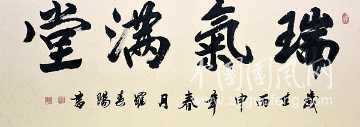 瑞氣滿堂
歲在丙申年春月羅春陽書
中国国风网